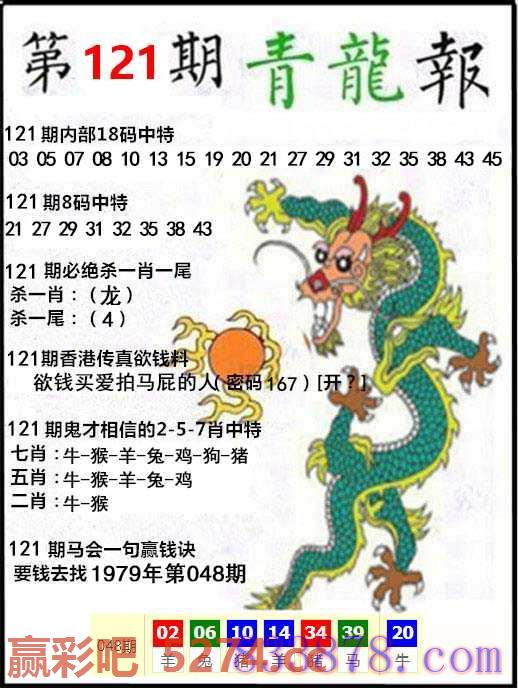 第121期青龍報
121期内部18码中特
03 05 07 08 10 13 15 19 20 21 27 29 31 32 35 38 43 45
121期8码中特
21 27 29 31 32 35 38 43
121期必绝杀一肖一尾
杀一肖：（龙）
杀一尾：（4）
121期香港传真欲钱料
欲钱买爱拍马屁的人(密码167)[开？]
121期鬼才相信的2-5-7肖中特
七肖：牛-猴-羊-兔-鸡-狗-猪
五肖：牛-猴-羊-兔-鸡
二肖：牛-猴
121期马会一句赢钱诀
要钱去找1979年第048期
048期 02 06 10 14 34 39 20
羊 兔 猪 羊 猪 马 牛
赢彩吧
878.com